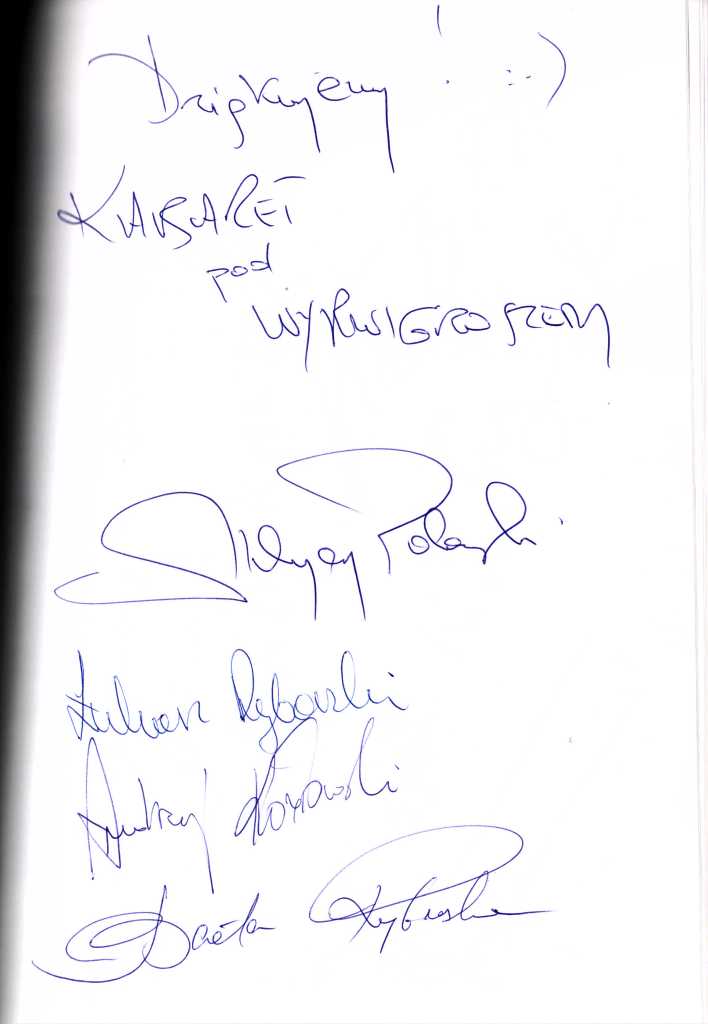 Dziękujemy ! :-)
KABARET
pod
WYRWIGROSZEM
Łukasz Rybarski
Andrzej Kozłowski
Beata Rybarska